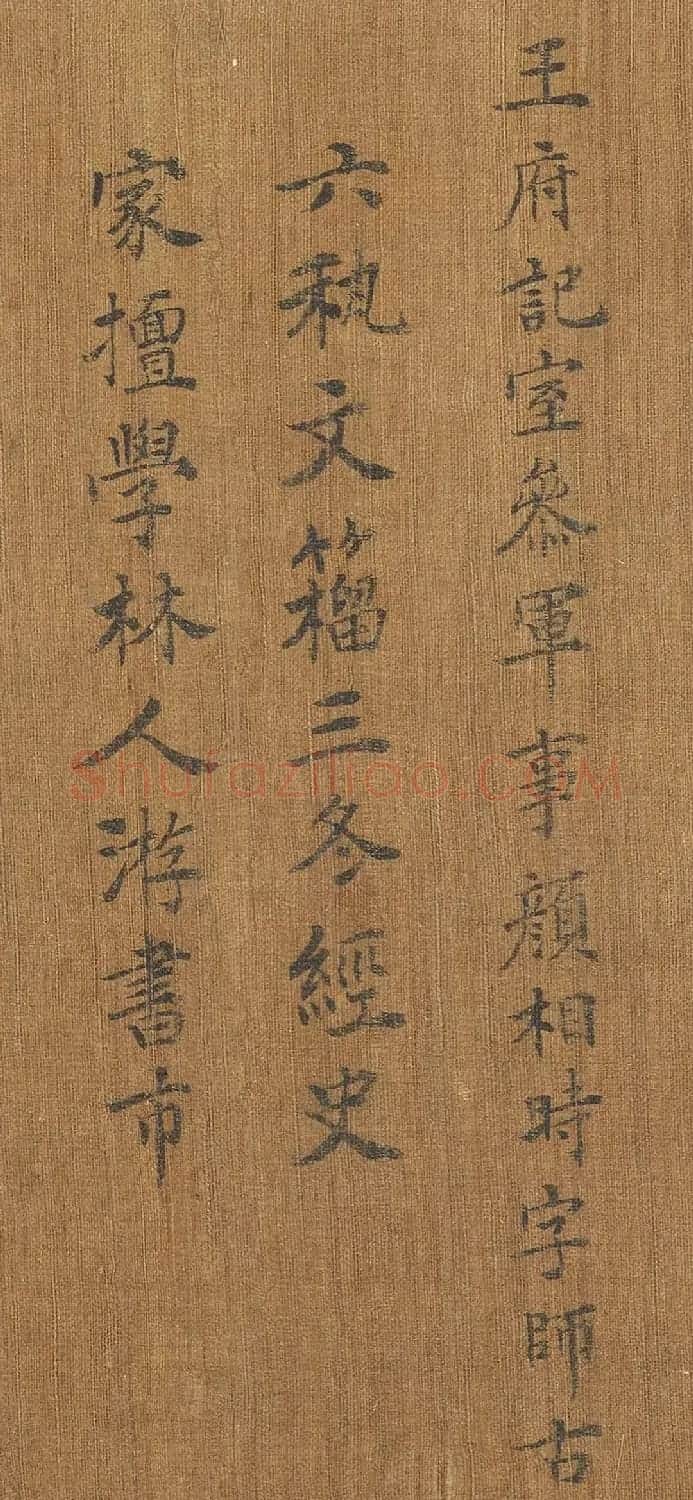 王府記室叅軍事顔相時字師古
六埶文籀三冬經史
家擅學林人游書市
shufaziliao.COM